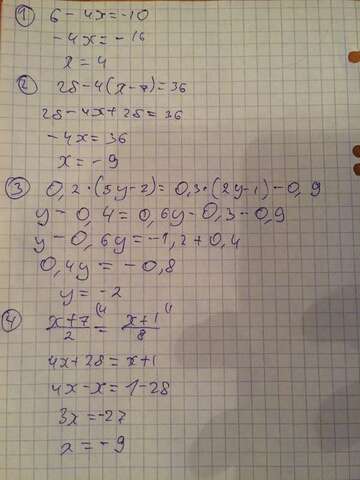 1) 6 - 4x = -10
-4x = -16
x = 4
2) 28 - 4(x - 7) = 36
28 - 4x + 28 = 36
-4x = 36
x = -9
3) 0,2·(5y-2) = 0,3·(2y-1) - 0,9
y - 0,4 = 0,6y - 0,3 - 0,9
y - 0,6y = -1,2 + 0,4
0,4y = -0,8
y = -2
4) x+7/2 (4 = x+1/8 (1
4x + 28 = x + 1
4x - x = 1 - 28
3x = -27
x = -9